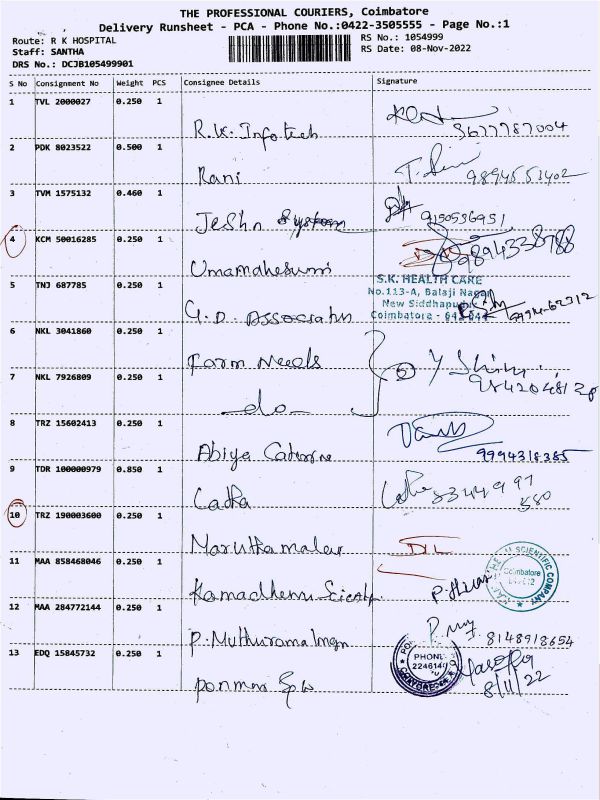 THE PROFESSIONAL COURIERS, Coimbatore
Delivery Runsheet - PCA - Phone No.:0422-3505555 - Page No.:1
Route: R K HOSPITAL
Staff: SANTHA
DRS No.: DCJB105499901
RS No.: 1054999
RS Date: 08-Nov-2022
S No Consignment No Weight PCS Consignee Details Signature
1 TVL 2000027 0.250 1
R.K. Infotech 3677787004
2 PDK 8023522 0.500 1
Rani 9894553402
3 TVM 1575132 0.460 1
Jeshn System 9150536951
4 KCM 50016285 0.250 1
Umamaheswari 9894338788
5 TNJ 687785 0.250 1
S.K. HEALTH CARE
No.113-A, Balaji Nagar
New Siddhapudur
Coimbatore - 641044
G.D. Associates
6 NKL 3041860 0.250 1
Farm Needs
7 NKL 7926809 0.250 1
-do-
8 TRZ 15602413 0.250 1
Abiya Catherine 9994318385
9 TDR 100000979 0.850 1
Catha 8344997
580
10 TRZ 190003600 0.250 1
Maruthamalar DL
11 MAA 858468046 0.250 1
SCIENTIFIC COMPANY
Coimbatore
Kamadhenu
12 MAA 284772144 0.250 1
P. Muthuramalingm 8148918654
13 EDQ 15845732 0.250 1
PHONE
2246140
8/11/22
ponmni